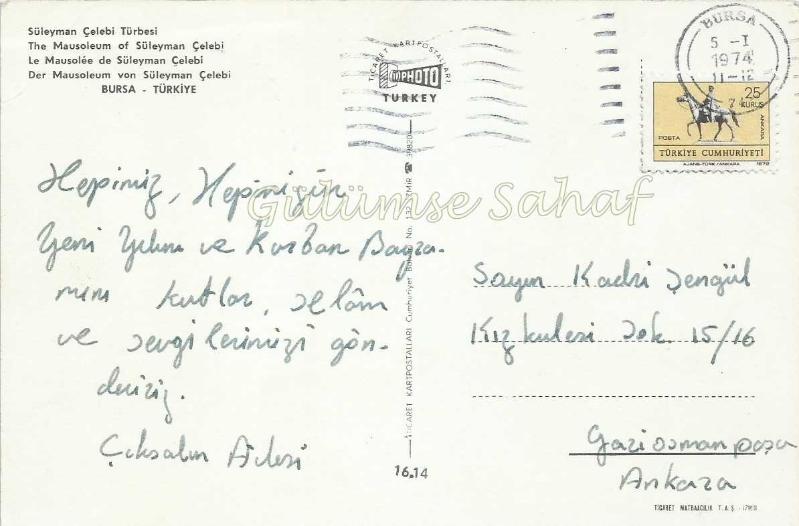 Süleyman Çelebi Türbesi
The Mausoleum of Süleyman Çelebi
Le Mausolée de Süleyman Çelebi
Der Mausoleum von Süleyman Çelebi
BURSA - TÜRKİYE
TİCARET KARTPOSTALLARI
PHOTO
TURKEY
BURSA
5 -I
1974
11-12
25
KURUŞ
POSTA
ANKARA
TÜRKİYE CUMHURİYETİ
AJANS-TÜRK/ANKARA 1972
Gülümse Sahaf
Hepimiz, Hepinizin
Yeni Yılını ve Kurban Bayra-
mını kutlar, selâm
ve sevgilerimizi gön-
deririz.
Çıksalın Ailesi
TİCARET KARTPOSTALLARI Cumhuriyet Bulvarı No. İZMİR
Sayın Kadri Şengül
Kızkulesi Sok 15/16
Gaziosmanpaşa
Ankara
16.14
TİCARET MATBAACILIK T.A.Ş. - İZMİR